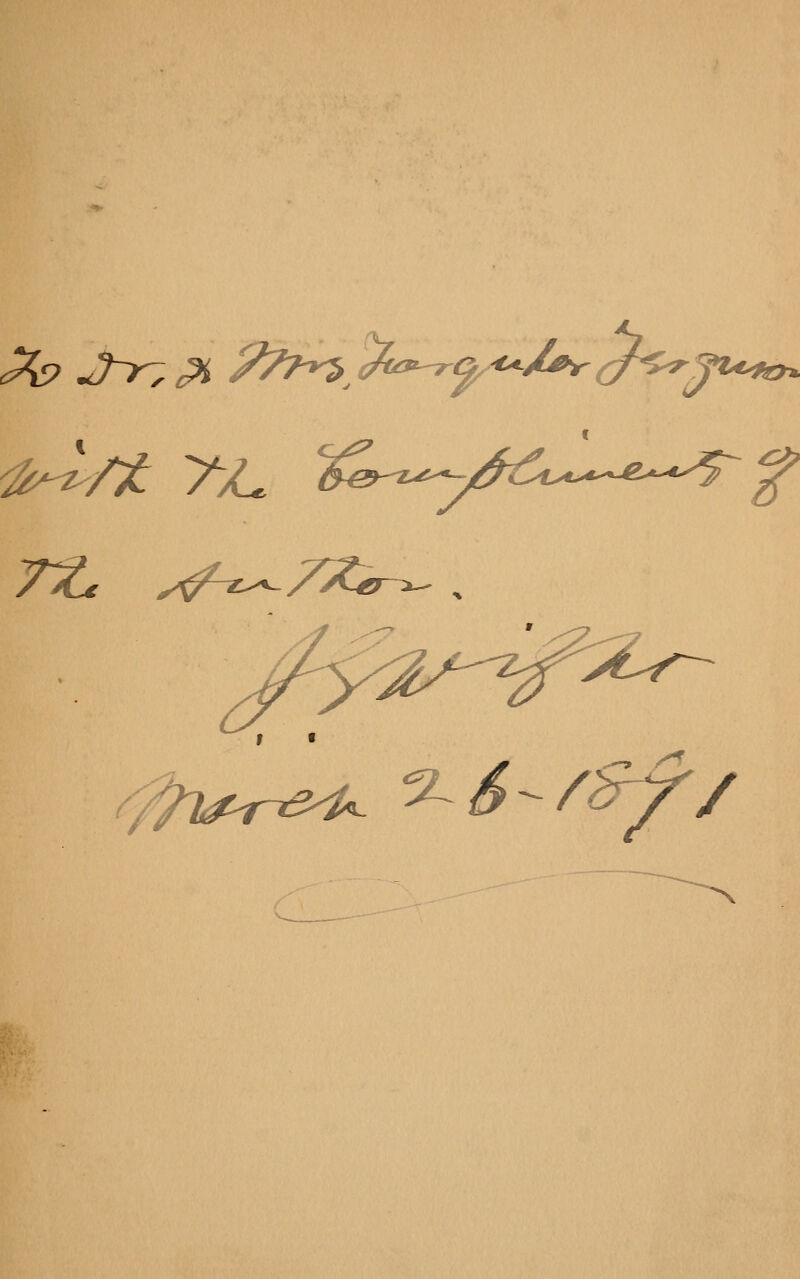 To Dr. & Mrs. Farquhar Ferguson
With The Compliment of
The Author.
J G Wight
March 26-1891